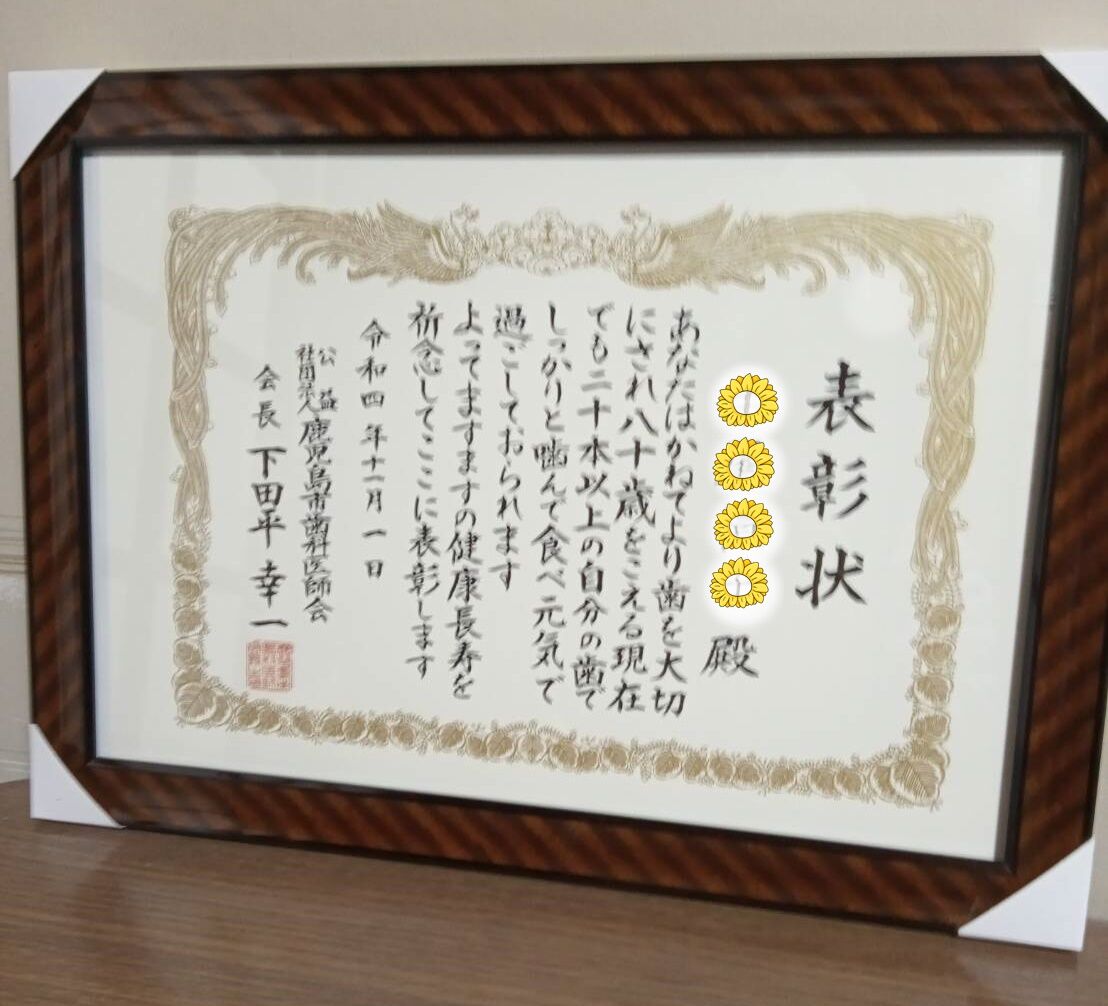 表彰状
殿
あなたはかねてより歯を大切
にされ八十歳をこえる現在
でも二十本以上の自分の歯で
しっかりと噛んで食べ元気で
過ごしておられます
よってますますの健康長寿を
祈念してここに表彰します
令和四年十一月一日
公益
社団法人鹿児島市歯科医師会
会長 下田平幸一